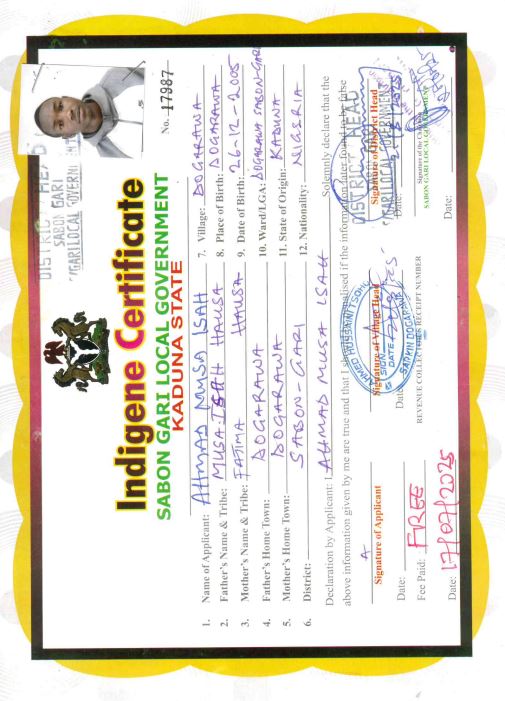 DISTRICT HEAD
SABON GARI
LOCAL GOVERNMENT
Indigene Certificate
SABON GARI LOCAL GOVERNMENT
KADUNA STATE
No. 17987
1. Name of Applicant: AHMAD MUSA ISAH
2. Father's Name & Tribe: MUSA ISAH HAUSA
3. Mother's Name & Tribe: FATIMA HAUSA
4. Father's Home Town: DOGARAWA
5. Mother's Home Town: DOGARAWA
6. District: SABON-GARI
7. Village: DOGARAWA
8. Place of Birth: DOGARAWA
9. Date of Birth: 26-12-2005
10. Ward/LGA: DOGARAWA SABON-GARI
11. State of Origin: KADUNA
12. Nationality: NIGERIA
Declaration by Applicant: I AHMAD MUSA ISAH Solemnly declare that the
above information given by me are true and that I shall be penalised if the information later found to be false
A
Signature of Applicant
Date:
Fee Paid: FREE
Date: 17/02/2025
AHMED HUSSAINI TSOHO
Signature of Village Head
SIGN
DATE
SARKIN DOGARAWA
Date:
REVENUE COLLECTOR'S RECEIPT NUMBER
DISTRICT HEAD
Signature of District Head
GARI LOCAL GOVERNMENT
Date:
Signature of the
SABON GARI LOCAL GOVERNMENT
Date: